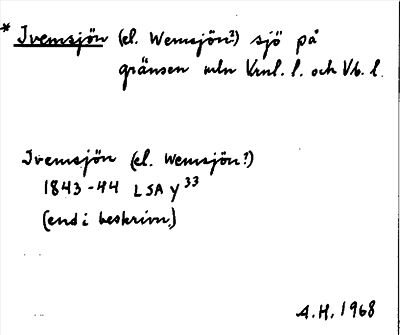 * Ivemsjön (el. Wemsjön?) sjö på
gränsen mln Vrml. l. och Vb. l.
Ivemsjön (el. Wemsjön?)
1843-44 LSA Y 33
(end i beskrivn.)
A.H. 1968